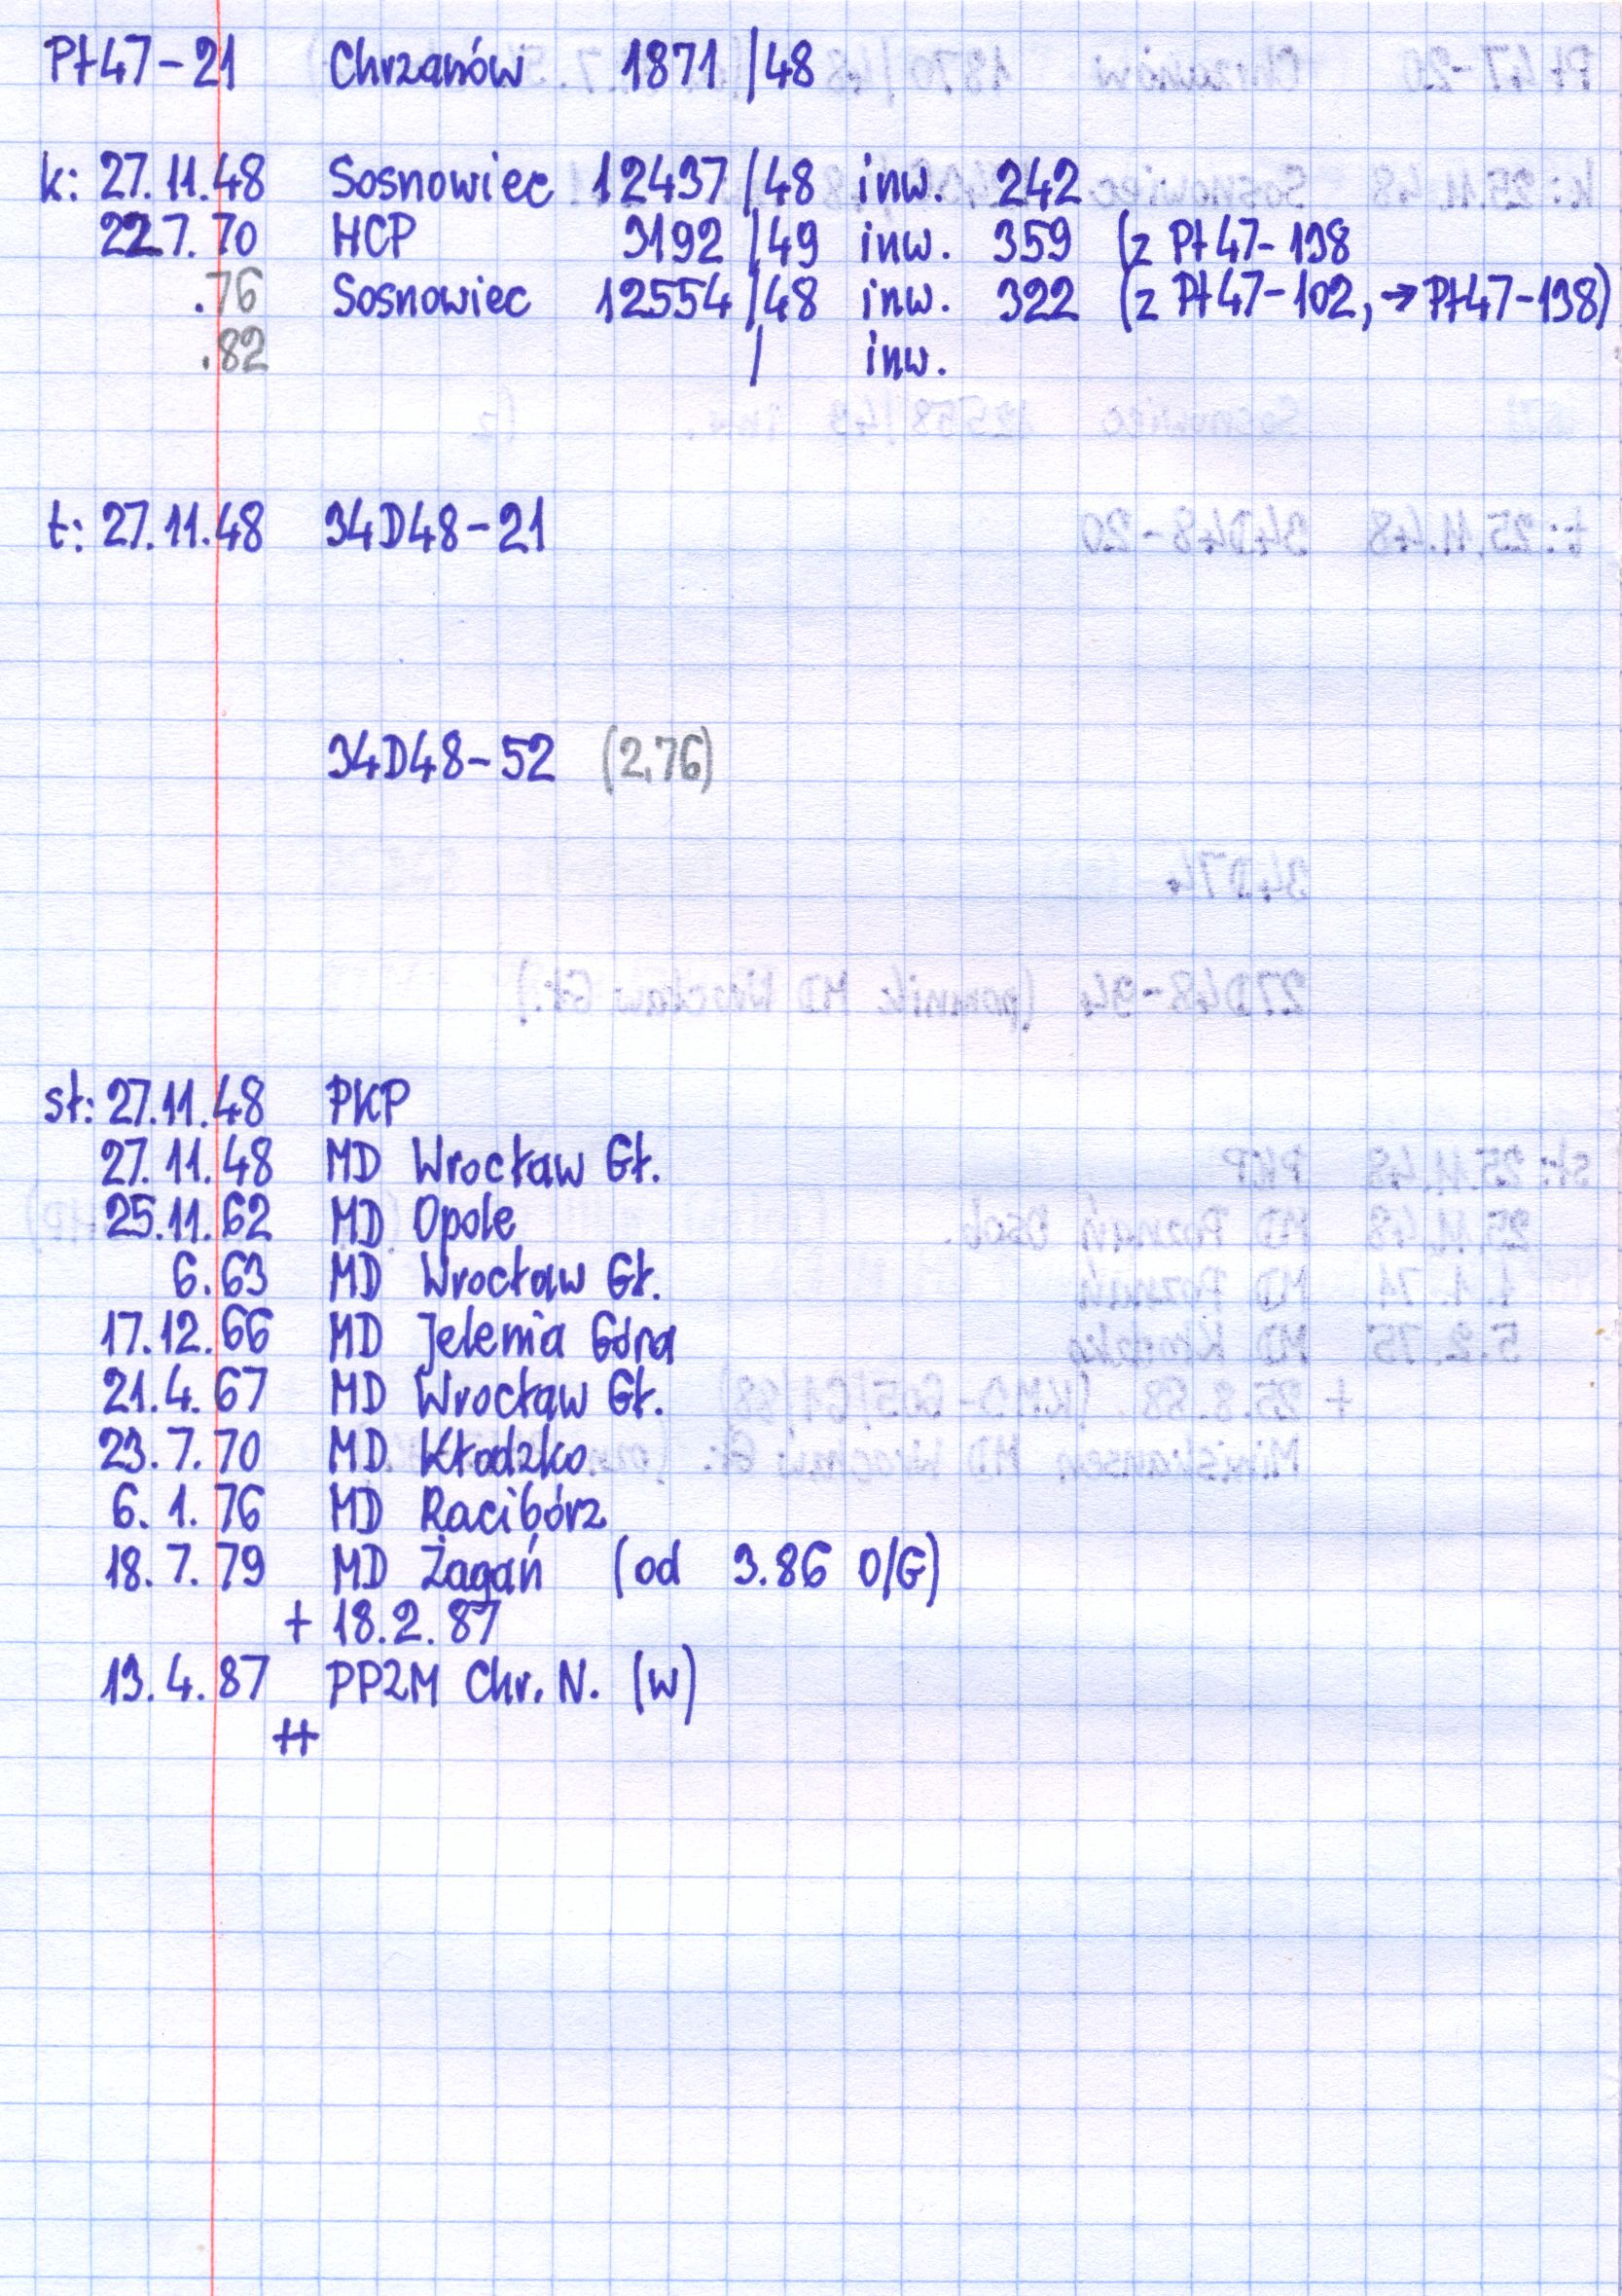 Pt47-21 Chrzanów 1871/48
k: 27.11.48 Sosnowiec 12437/48 inw. 242
22.7.70 HCP 3192/49 inw. 359 (z Pt47-138
.76 Sosnowiec 12554/48 inw. 322 (z Pt47-102, → Pt47-138)
.82 / inw.
t: 27.11.48 34D48-21
34D48-52 (2.76)
st: 27.11.48 PKP
27.11.48 MD Wrocław Gł.
25.11.62 MD Opole
6.63 MD Wrocław Gł.
17.12.66 MD Jelenia Góra
21.4.67 MD Wrocław Gł.
23.7.70 MD Kłodzko
6.1.76 MD Racibórz
18.7.79 MD Żagań (od 3.86 O/G)
+ 18.2.87
13.4.87 PPZM Chr. N. (w)
++